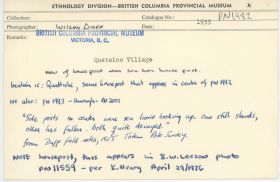 ETHNOLOGY DIVISION—BRITISH COLUMBIA PROVINCIAL MUSEUM
Remarks: Catalogue No.: PN1992
Photographer: WILSON DUFF 1955
BRITISH COLUMBIA PROVINCIAL MUSEUM
VICTORIA, B. C.
Quatsino Village
View of housepost was sea lion house post.
location is: Quattishe, same housepost that appears in center of PN 1992
see also: PN 1993 -
"Side posts no center were sea lions looking up. One still stands,
other has fallen. Both quite decayed."
from Duff field notes, 1955 Totem Pole Survey.
NOTE housepost, thus appears in B.W. Leeson photo
PN 11559 - per K. Henry April 29/1976